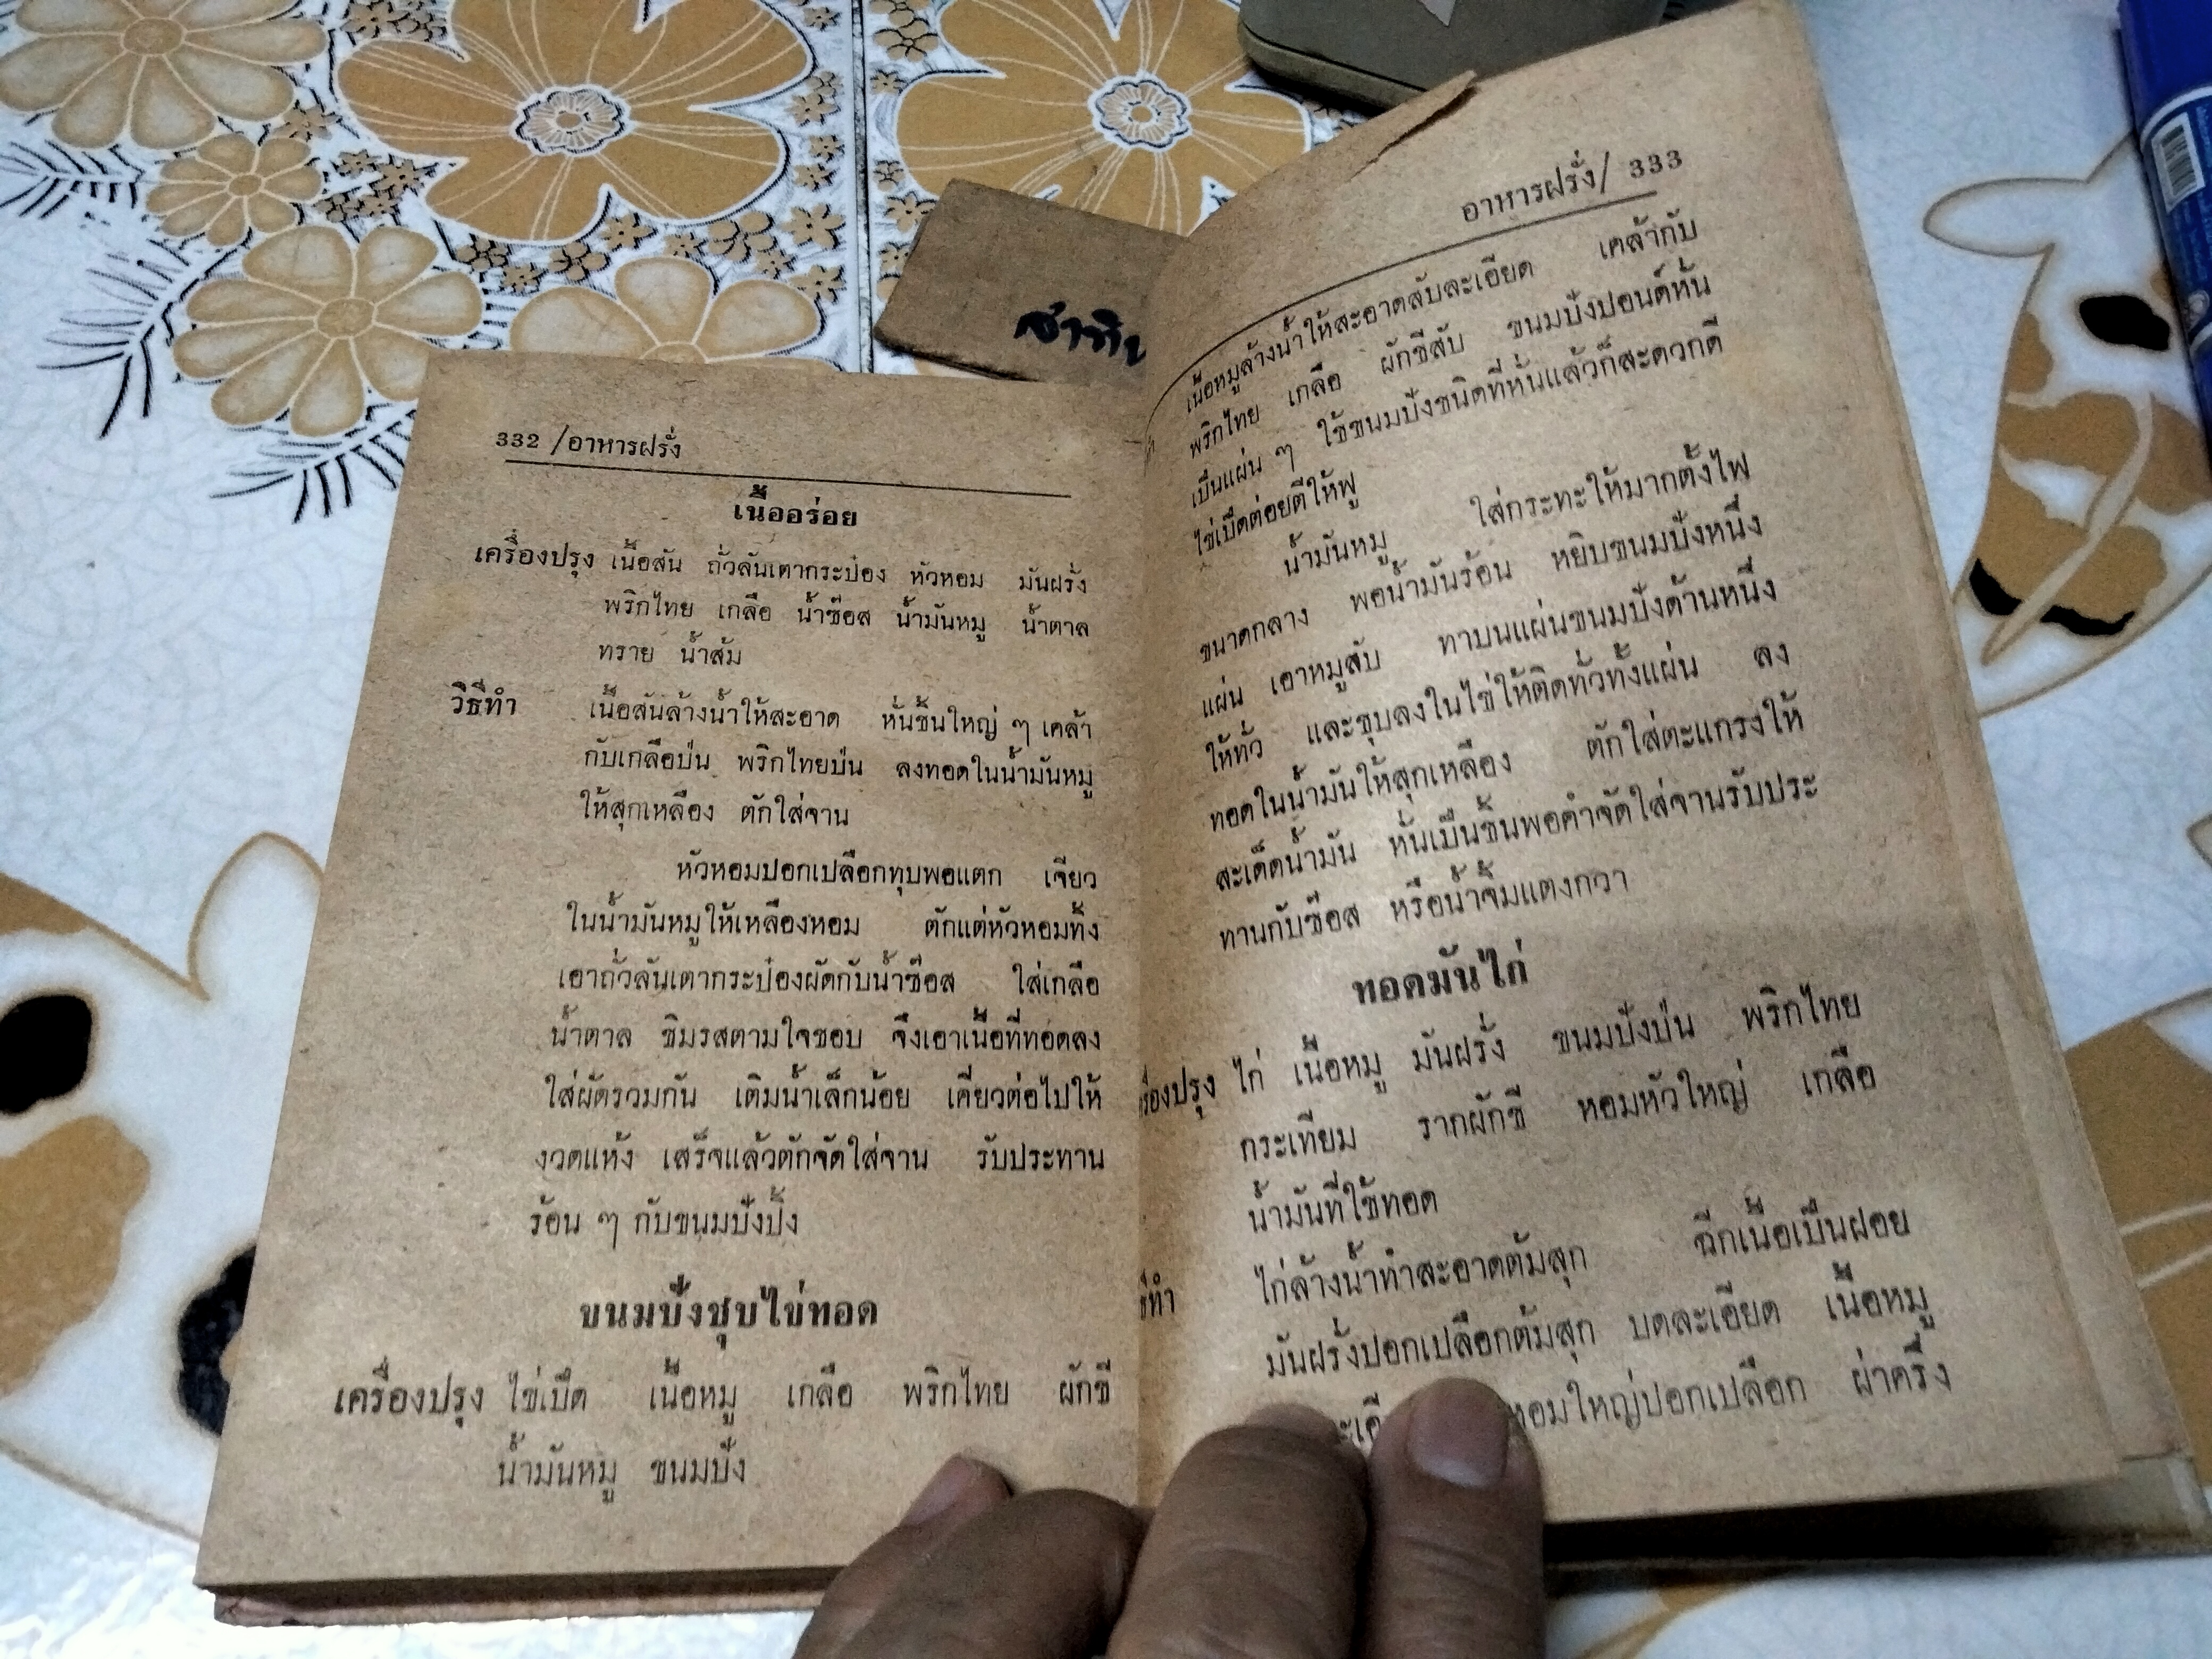 332 /อาหารฝรั่ง
เนื้ออร่อย
เครื่องปรุง เนื้อสัน ถั่วลันเตากระป๋อง หัวหอม มันฝรั่ง
พริกไทย เกลือ น้ำซ๊อส น้ำมันหมู น้ำตาล
ทราย น้ำส้ม
วิธีทำ เนื้อสันล้างน้ำให้สะอาด หั่นชิ้นใหญ่ ๆ เคล้า
กับเกลือป่น พริกไทยป่น ลงทอดในน้ำมันหมู
ให้สุกเหลือง ตักใส่จาน
หัวหอมปอกเปลือกทุบพอแตก เจียว
ในน้ำมันหมูให้เหลืองหอม ตักแต่หัวหอมทิ้ง
เอาถั่วลันเตากระป๋องผัดกับน้ำซ๊อส ใส่เกลือ
น้ำตาล ชิมรสตามใจชอบ จึงเอาเนื้อที่ทอดลง
ใส่ผัดรวมกัน เติมน้ำเล็กน้อย เคี่ยวต่อไปให้
งวดแห้ง เสร็จแล้วตักจัดใส่จาน รับประทาน
ร้อน ๆ กับขนมปังปิ้ง
ขนมปังชุบไข่ทอด
เครื่องปรุง ไข่เป็ด เนื้อหมู เกลือ พริกไทย ผักชี
น้ำมันหมู ขนมปัง
อาหารฝรั่ง/ 333
เนื้อหมูล้างน้ำให้สะอาดสับละเอียด เคล้ากับ
พริกไทย เกลือ ผักชีสับ ขนมปังปอนด์หั่น
เป็นแผ่น ๆ ใช้ขนมปังชนิดที่หั่นแล้วก็สะดวกดี
ไข่เป็ดต่อยตีให้ฟู
น้ำมันหมู ใส่กระทะให้มากตั้งไฟ
ขนาดกลาง พอน้ำมันร้อน หยิบขนมปังหนึ่ง
แผ่น เอาหมูสับ ทาบนแผ่นขนมปังด้านหนึ่ง
ให้ทั่ว และชุบลงในไข่ให้ติดทั่วทั้งแผ่น ลง
ทอดในน้ำมันให้สุกเหลือง ตักใส่ตะแกรงให้
สะเด็ดน้ำมัน หั่นเป็นชิ้นพอคำจัดใส่จานรับประ
ทานกับซ๊อส หรือน้ำจิ้มแตงกวา
ทอดมันไก่
รื่องปรุง ไก่ เนื้อหมู มันฝรั่ง ขนมปังป่น พริกไทย
กระเทียม รากผักชี หอมหัวใหญ่ เกลือ
น้ำมันที่ใช้ทอด
ธีทำ ไก่ล้างน้ำทำสะอาดต้มสุก ฉีกเนื้อเป็นฝอย
มันฝรั่งปอกเปลือกต้มสุก บดละเอียด เนื้อหมู
หอมใหญ่ปอกเปลือก ผ่าครึ่ง